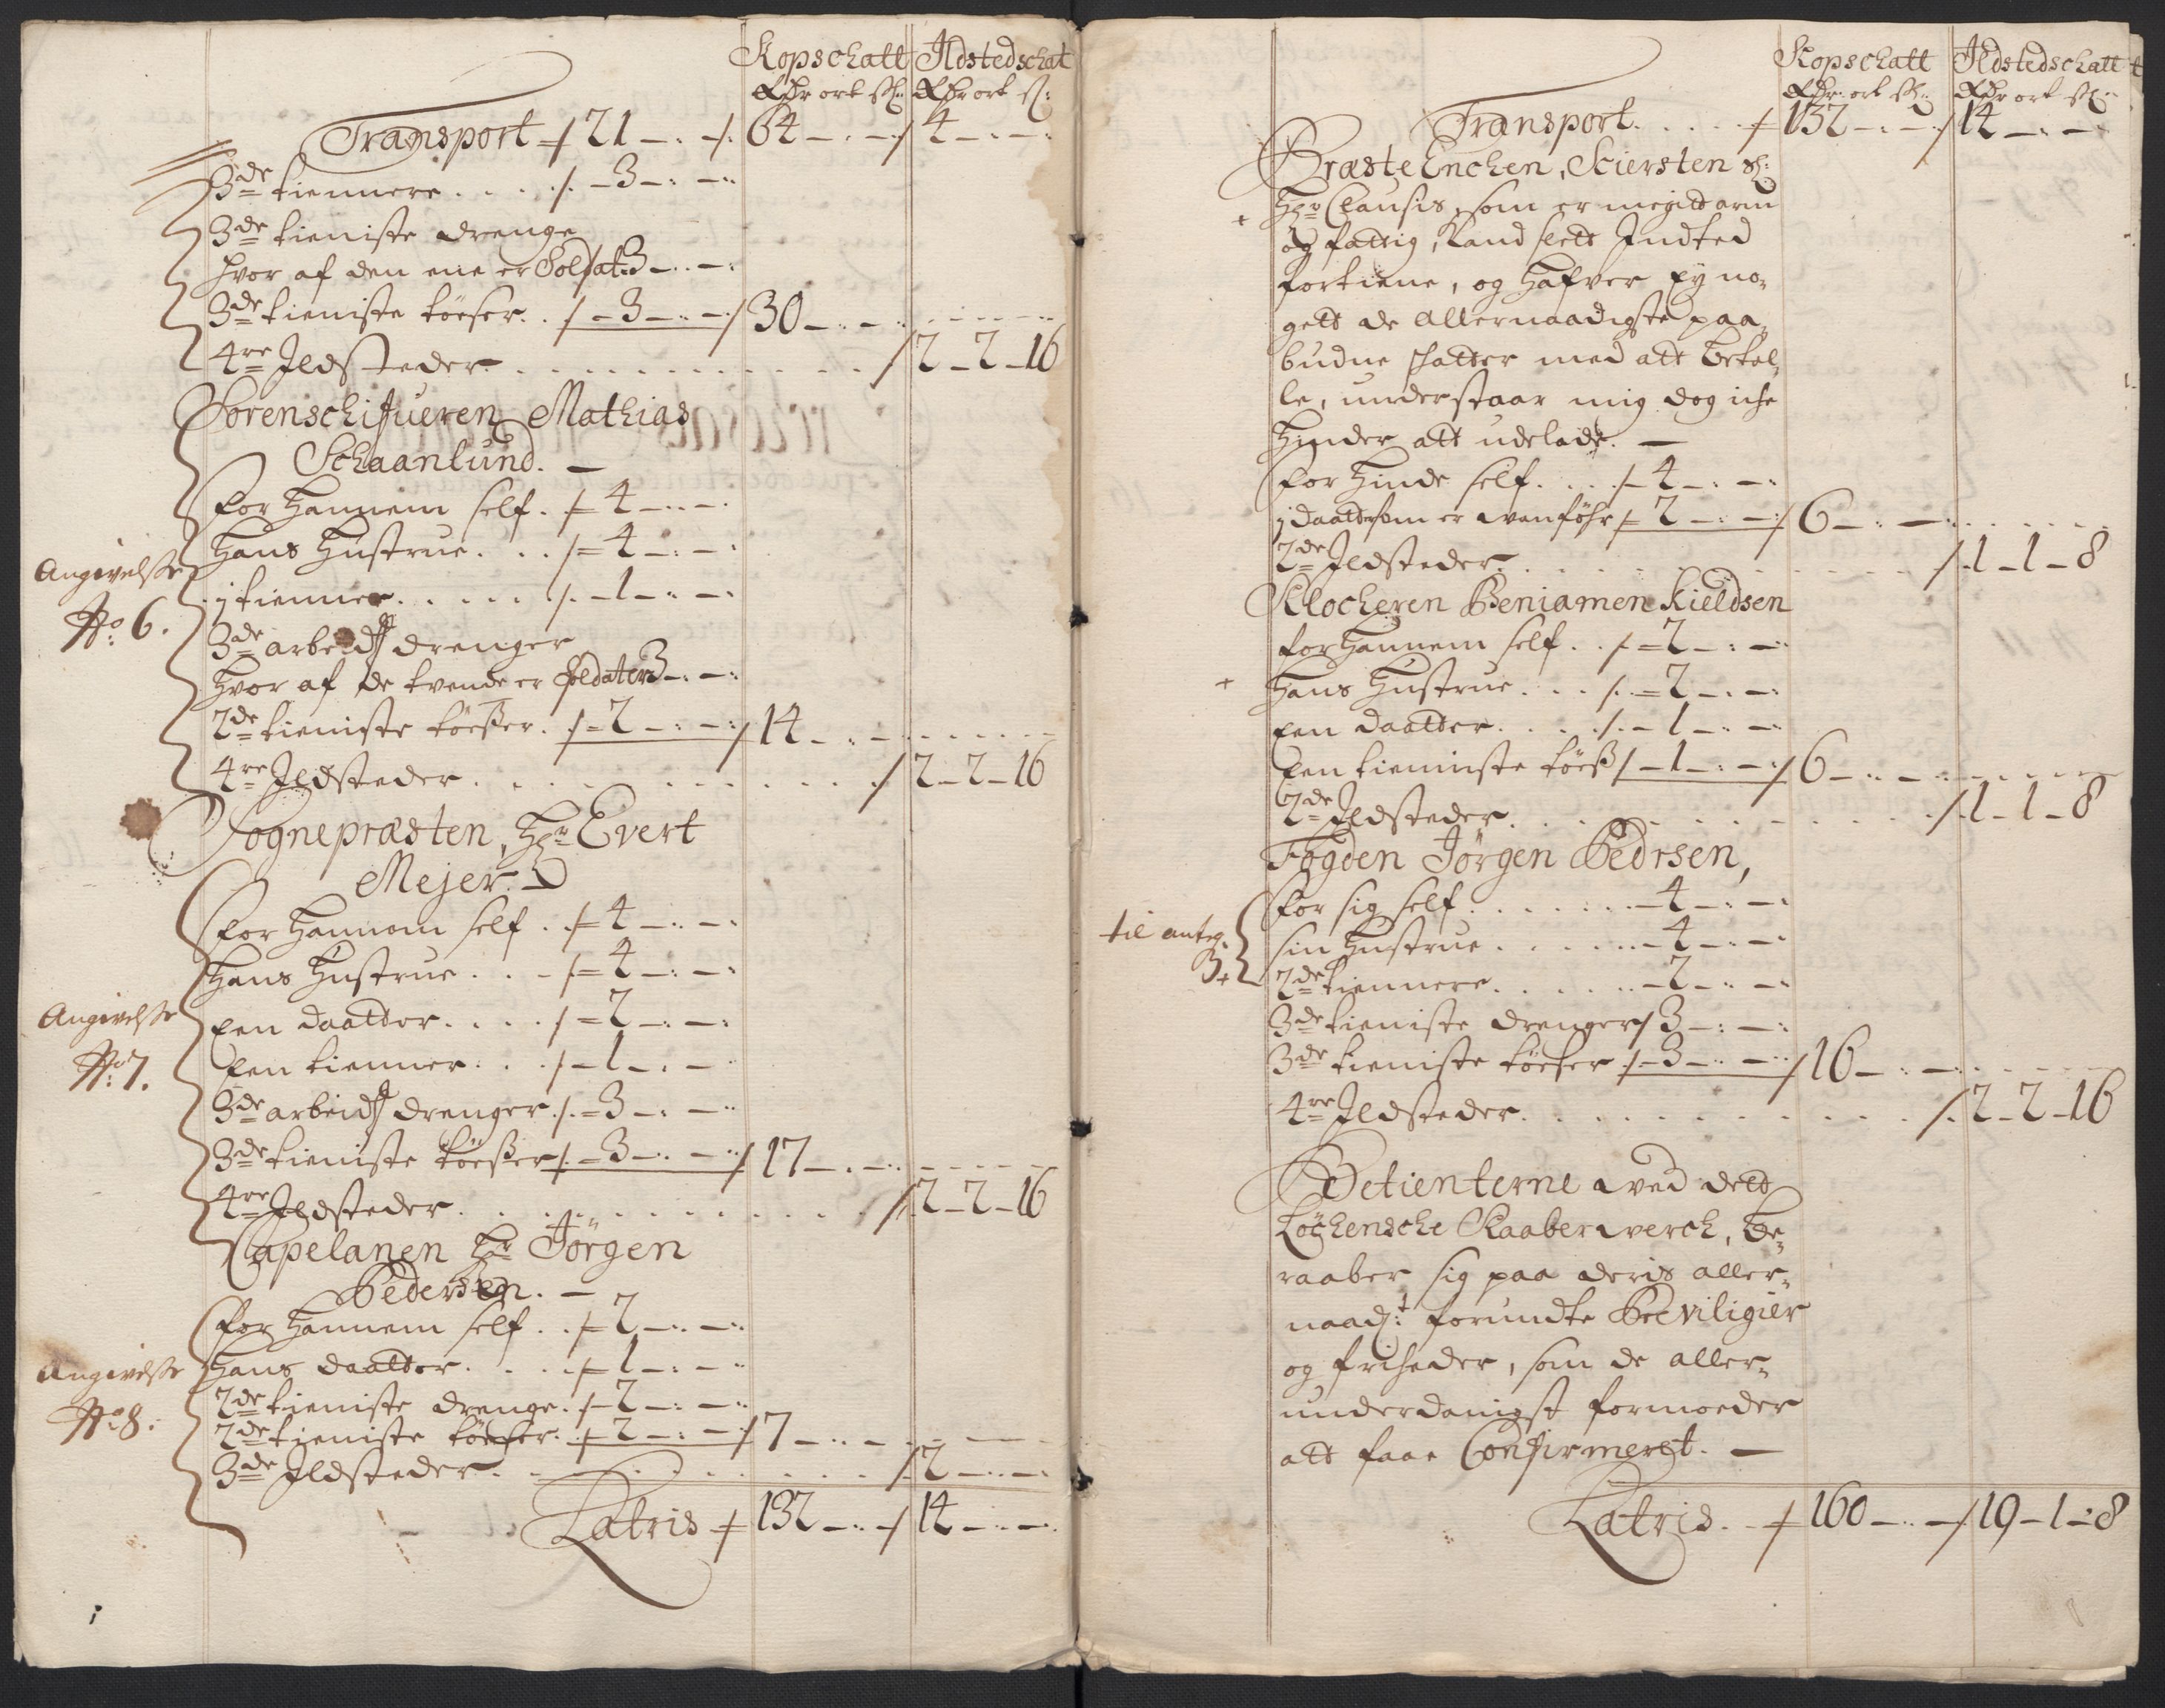 Kopschatt Ildstedschat
Rdr ort sh: Rdr ort s:
Transport 21 - : - 64 - : - 4 - : -
3de tiennere . . . . - 3 - : -
3de tieniste drenge
hvor af den ene er Soldat 3 - : -
3de tieniste töeser . . - 3 - : - 30 - : -
4re Ildsteder . . . . . . . . 2 - 2 - 16
Sorenschifueren Mathias
Schaanlund. -
for Hannem self . 4 - : -
Hans Hustrue . . . 4 - : -
j tienner . . . . . - 1 - : -
Angivelsse
No: 6.
3de arbeids drenger
Hvor af de tvende er Soldater 3 - : -
2de tieniste töesser . - 2 - : - 14 - : -
4re Ildsteder . . . . . . . . 2 - 2 - 16
Sognepræsten, Hr Evert
Mejer. -
for Hannom self . . 4 - : -
Hans Hustrue . . . 4 - : -
Een daatter . . . . 2 - : -
Angivelsse
No: 7.
Een tienner . . . - 1 - : -
3de arbeids drenger . - 3 - : -
3de tieniste töesser - 3 - : - 17 - : -
4re Ildsteder . . . . . . . . 2 - 2 - 16
Capelanen Hr Jörgen
Pedersen. -
for Hannem self . . 2 - : -
Hans daatter . . . . 1 - : -
Angivelsse
No: 8.
2de tieniste drenge . - 2 - : -
2de tieniste töeser . 2 - : - 7 - : -
3de Ildsteder . . . . . . . . 2 - : -
Latris 132 - : - 14 - : -
Kopschatt Ildstedschatt
Rdr: ort sh: Rdr ort sh:
Transport . . . . . 132 - : - 14 - : -
Præste Enchen, Kiersten Sl:
Hr Clausis, som er megitt arm
og fattig, kand slett Indted
fortiene, og Hafver Ey no-
gett de Allernaadigste paa-
budne schatter med att betal-
le, understaar mig dog iche
Hinder att udelade. -
for Hinde self . . . - 4 - : -
j daatter som er vanföhr 2 - : - 6 - : -
2de Ildsteder . . . . . . . . 1 - 1 - 8
Klocheren Beniamen Kieldsen
for Hannem self . . 2 - : -
Hans Hustrue . . . 2 - : -
Een daatter . . . . - 1 - : -
Een tienniste töes - 1 - : - 6 - : -
2de Ildsteder . . . . . . . . 1 - 1 - 8
Fogden Jörgen Pedrsen,
for sig self . . . . . . - 4 - : -
til anteg.
3
sin Hustrue . . . . . - 4 - : -
2de tiennere . . . . . - 2 - : -
3de tieniste drenger 3 - : -
3de tieniste töeser - 3 - : - 16 - : -
4re Ildsteder . . . . . . . . 2 - 2 - 16
Betienterne ved dett
Löchensche Kaaberverch, be-
raaber sig paa deris aller-
naad:t forundte Previligier
og friheder, som de aller-
underdanigst formoeder
att faae Confirmerst. -
Latris. 160 - : - 19 - 1 - 8